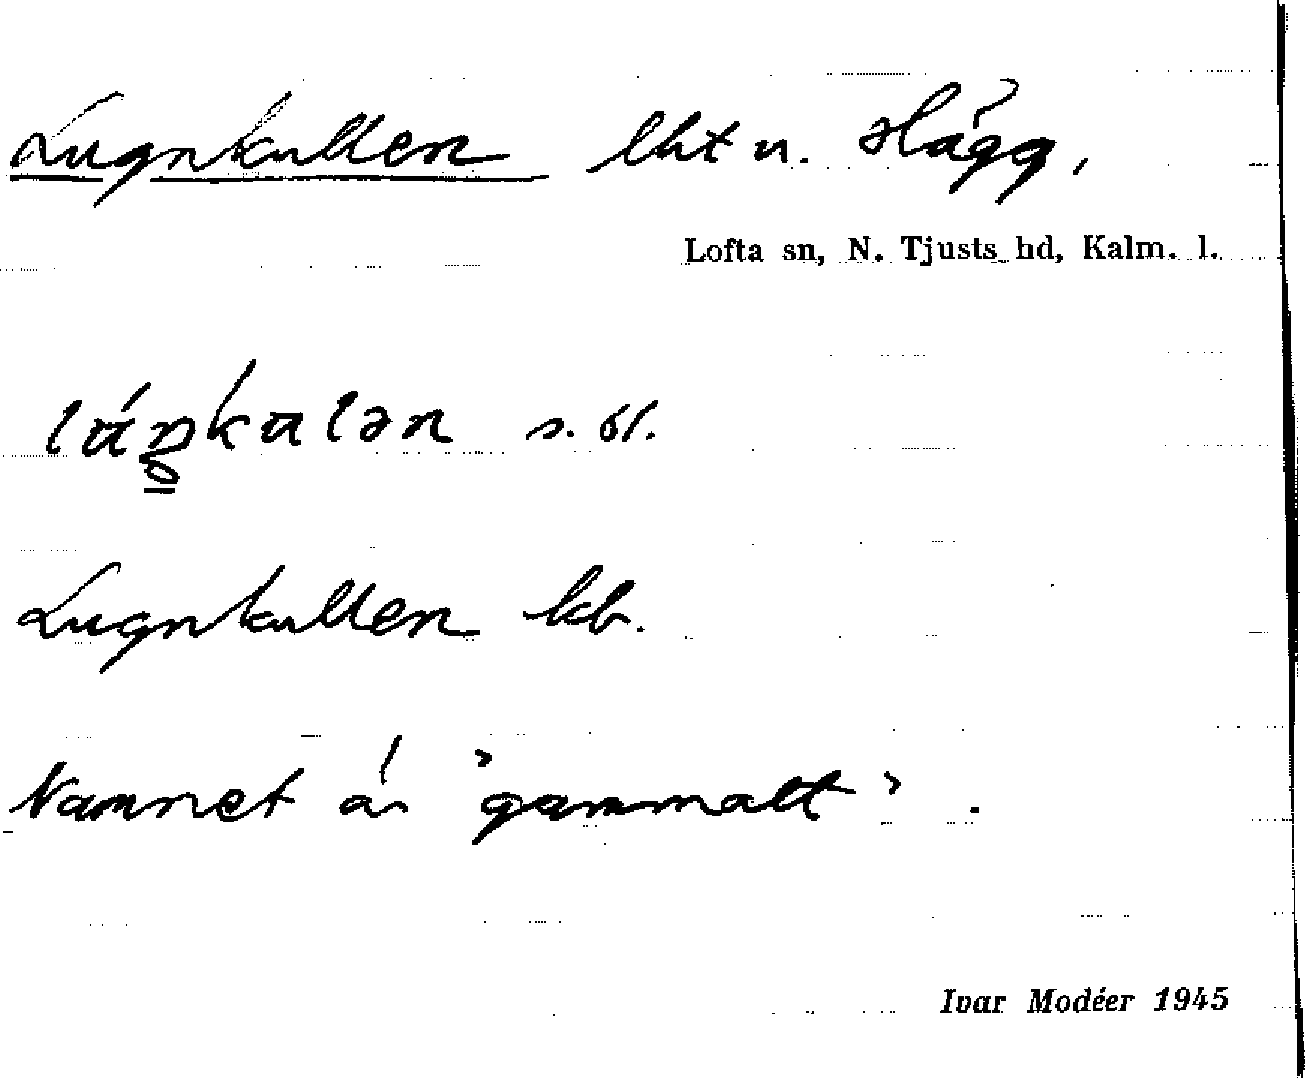 Lugnkullen lht u. Hägg,
Lofta sn, N. Tjusts hd, Kalm. l.
s. bl.
Lugnkullen kb.
Namnet är "gammalt".
Ivar Modéer 1945